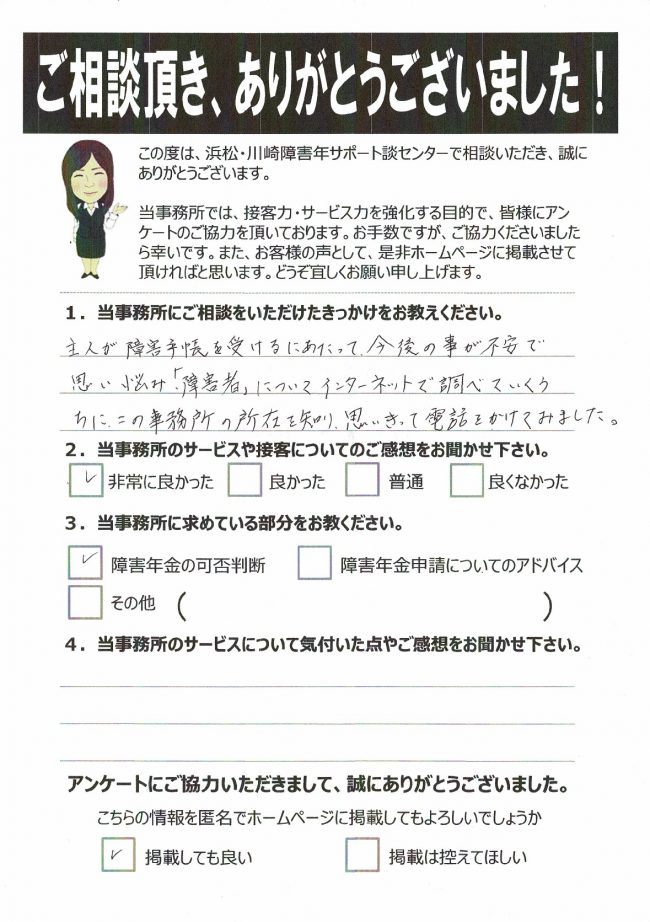 ご相談頂き、ありがとうございました!
この度は、浜松・川崎障害年サポート談センターで相談いただき、誠に
ありがとうございます。
当事務所では、接客力・サービス力を強化する目的で、皆様にアン
ケートのご協力を頂いております。お手数ですが、ご協力くださいました
ら幸いです。また、お客様の声として、是非ホームページに掲載させて
頂ければと思います。どうぞ宜しくお願い申し上げます。
1．当事務所にご相談をいただけたきっかけをお教えください。
主人が障害手帳を受けるにあたって、今後の事が不安で
思い悩み「障害者」についてインターネットで調べていくう
ちに、この事務所の所在を知り、思いきって電話をかけてみました。
2．当事務所のサービスや接客についてのご感想をお聞かせ下さい。
✓ 非常に良かった □ 良かった □ 普通 □ 良くなかった
3．当事務所に求めている部分をお教ください。
✓ 障害年金の可否判断 □ 障害年金申請についてのアドバイス
□ その他 ( )
4．当事務所のサービスについて気付いた点やご感想をお聞かせ下さい。
アンケートにご協力いただきまして、誠にありがとうございました。
こちらの情報を匿名でホームページに掲載してもよろしいでしょうか
✓ 掲載しても良い □ 掲載は控えてほしい